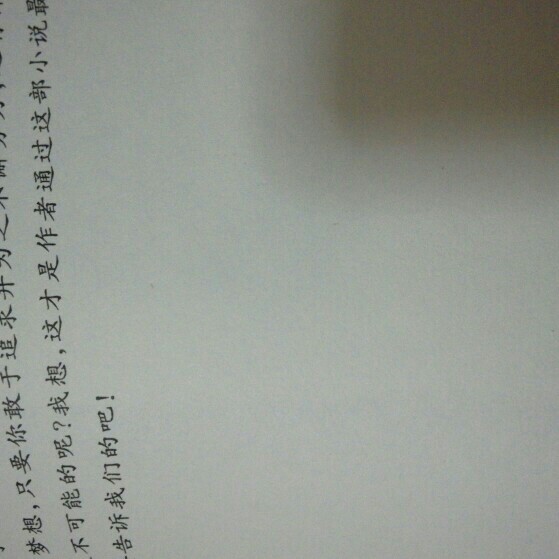 梦想，只要你敢于追求并为之不断努力，
不可能的呢？我想，这才是作者通过这部小说最
告诉我们的吧！